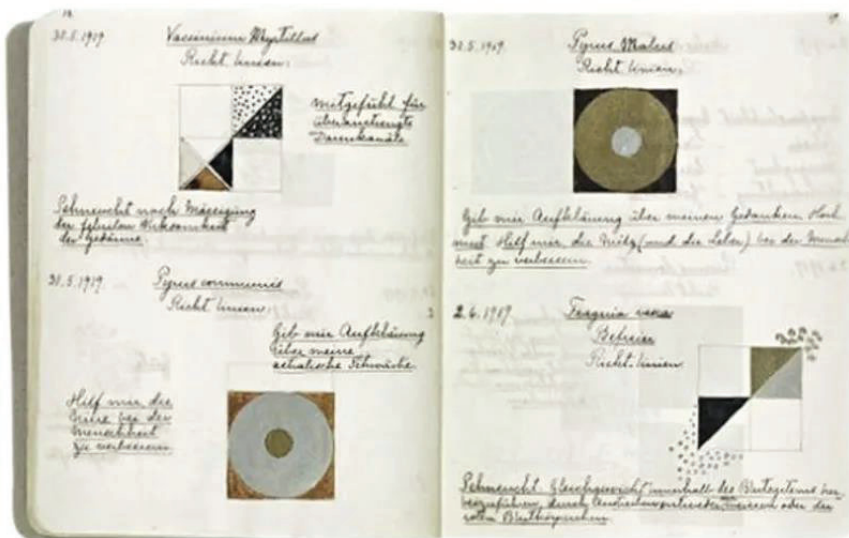 18
30.5.1919
Vaccinium Myrtillus
Richt Linien:
Mitgefühl für
überanstrengte
Darmkanäle
Sehnsucht nach Mässigung
der Wirksamkeit
der Gedärme.
30.5.1919.
Pyrus communis
Richt Linien:
Gib mir Aufklärung
über meine
Schwäche
Hilf mir die
bei der
Menschheit
zu verbessern
19
30.5.1919.
Pyrus Malus
Richt Linien:
Gib mir Aufklärung über meinen Gedanken
Hilf mir die (und die Leber) bei der
zu verbessern
2.6.1919
Befreier
Richt-Linien
Sehnsucht Gleichgewicht innerhalb des
durch oder der
roten Blutkörperchen